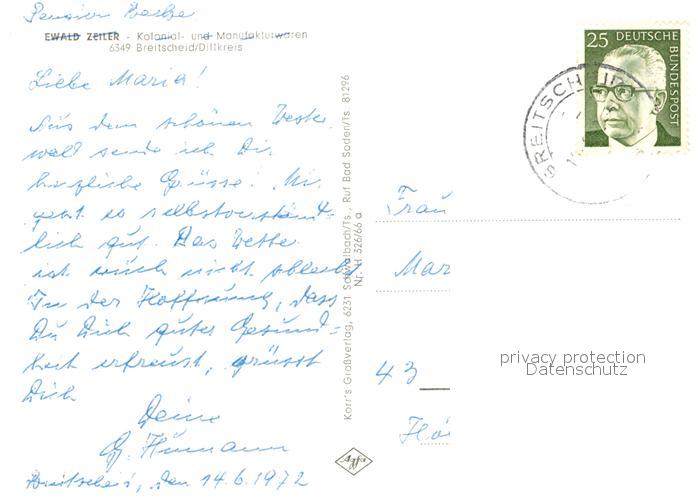 Pension Becker
EWALD ZEILER - Kolonial- und Manufakturwaren
6349 Breitscheid/Dillkreis
Liebe Maria!
Aus dem schönen Wester-
wald sende ich Dir
herzliche Grüsse! Mir
geht es selbstverständ=
lich gut. Das Wetter
ist auch nicht
In der Hoffnung, dass
Du Dich guter Gesund=
heit erfreust, grüsst
Dich
Deine
Breitscheid, den 14.6.1972
Korr's Großverlag, 6231 Schwalbach/Ts., Ruf Bad Soden/Ts. 81296
Nr. H 326/66 a
Agfa
25 DEUTSCHE
BUNDESPOST
BREITSCHEID
Frau
Mar
43
Hö
privacy protection
Datenschutz